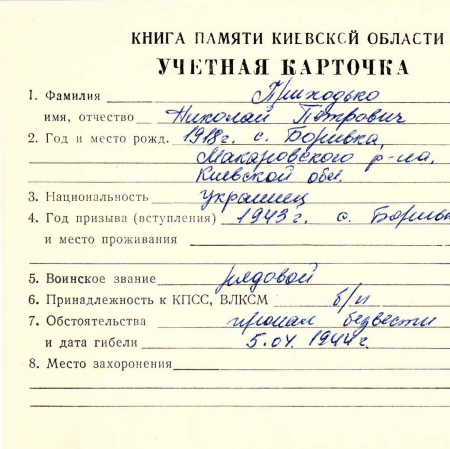 КНИГА ПАМЯТИ КИЕВСКОЙ ОБЛАСТИ
УЧЕТНАЯ КАРТОЧКА
1. Фамилия Приходько
имя, отчество Николай Петрович
2. Год и место рожд. 1918 г. с. Боривка,
Макаровского р-на,
Киевской обл.
3. Национальность украинец
4. Год призыва (вступления) 1943 г. с. Боривк
и место проживания
5. Воинское звание рядовой
6. Принадлежность к КПСС, ВЛКСМ б/п
7. Обстоятельства пропал безвести
и дата гибели 5.04.1944 г.
8. Место захоронения